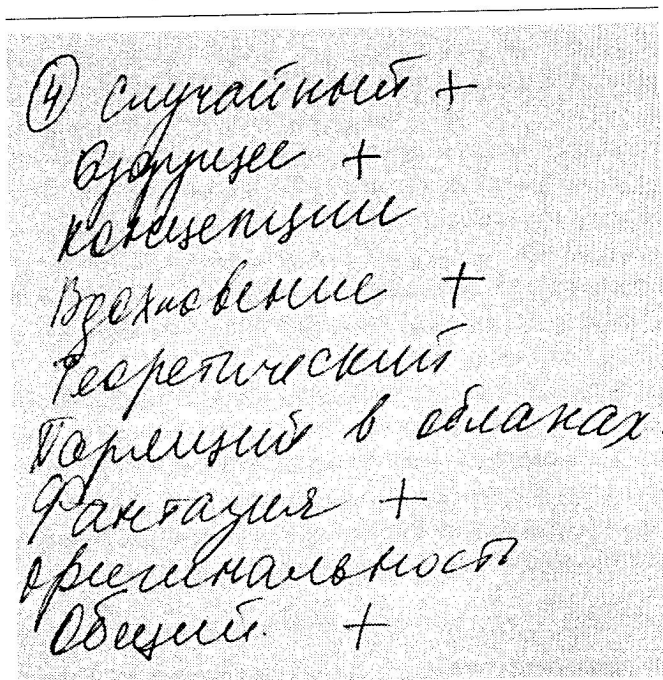 ④ Случайный +
будущее +
концепции
Вдохновение +
Теоретический
Парящий в облаках.
Фантазия +
оригинальность
Общий. +